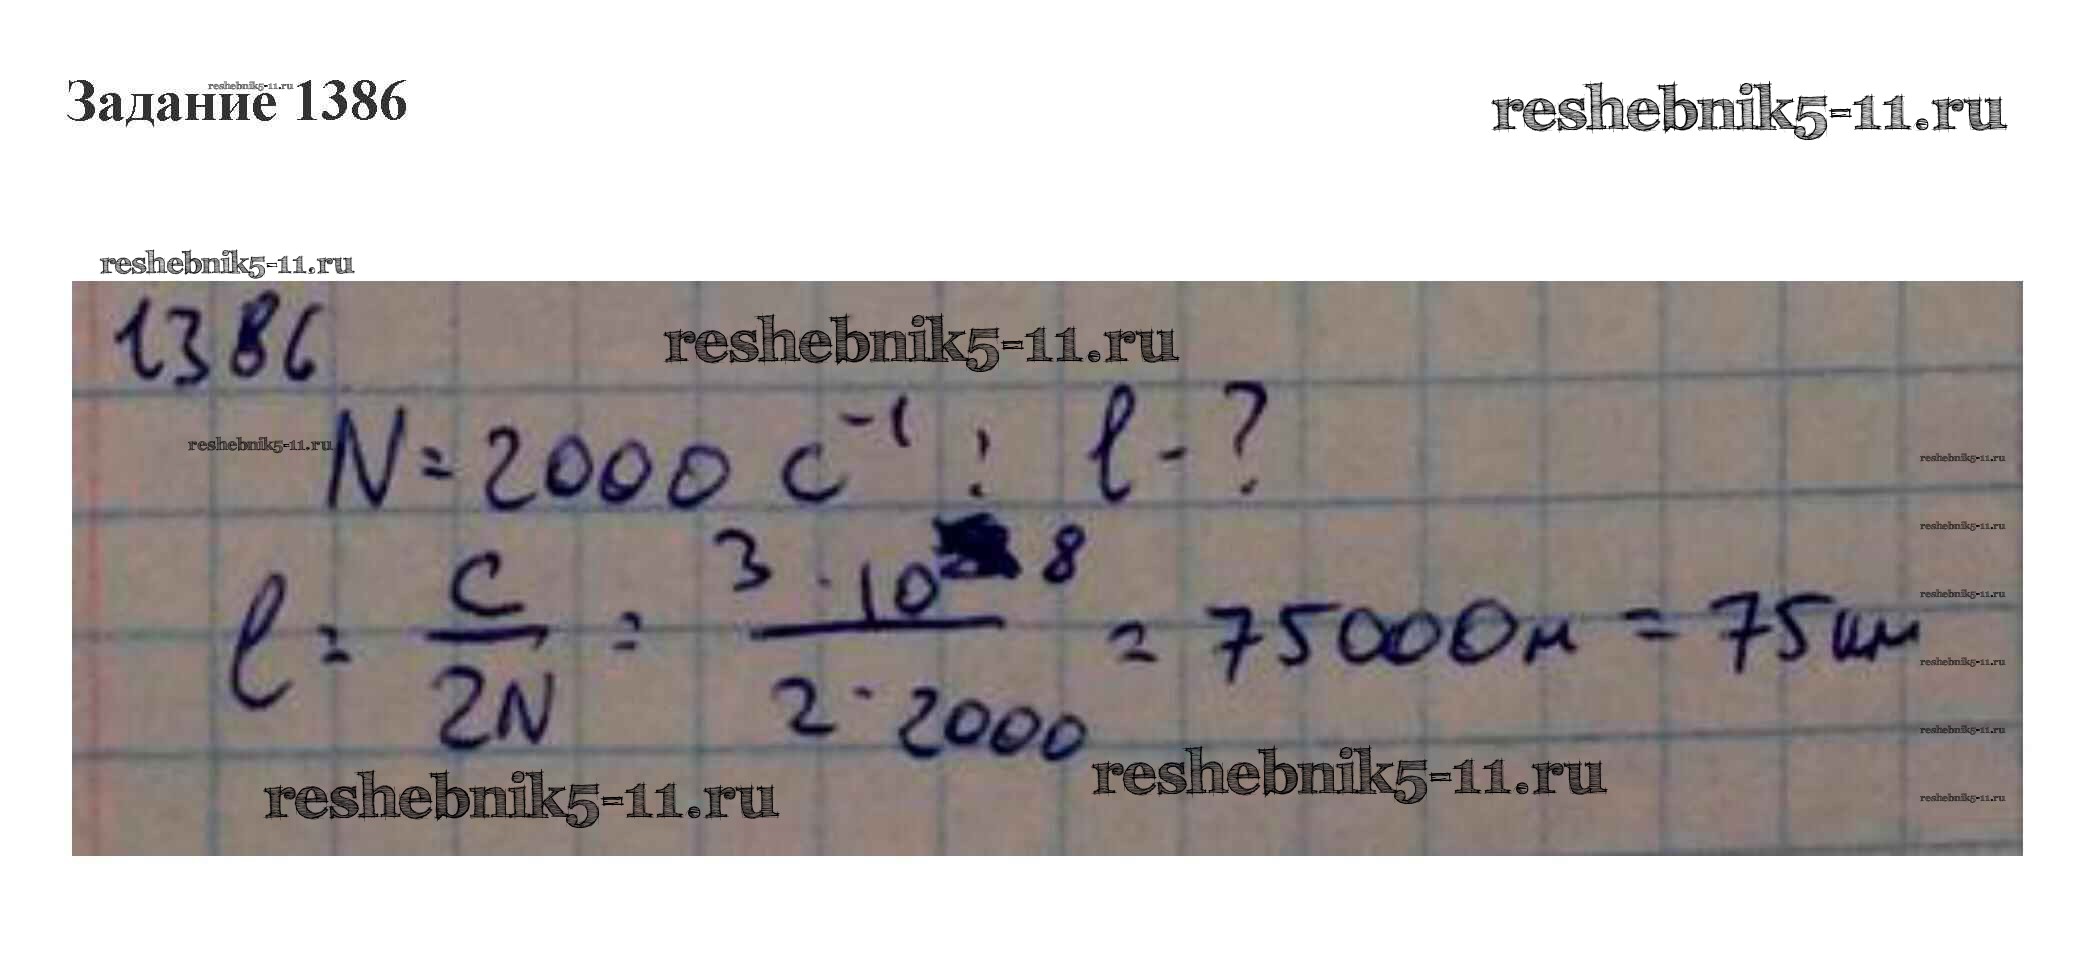 Задание 1386
reshebnik5-11.ru
reshebnik5-11.ru
reshebnik5-11.ru
1386
reshebnik5-11.ru
N = 2000 с⁻¹ ; l - ?
reshebnik5-11.ru
reshebnik5-11.ru
reshebnik5-11.ru
l = c/2N = 3·10⁸/2·2000 = 75000м = 75км
reshebnik5-11.ru
reshebnik5-11.ru
reshebnik5-11.ru
reshebnik5-11.ru
reshebnik5-11.ru
reshebnik5-11.ru